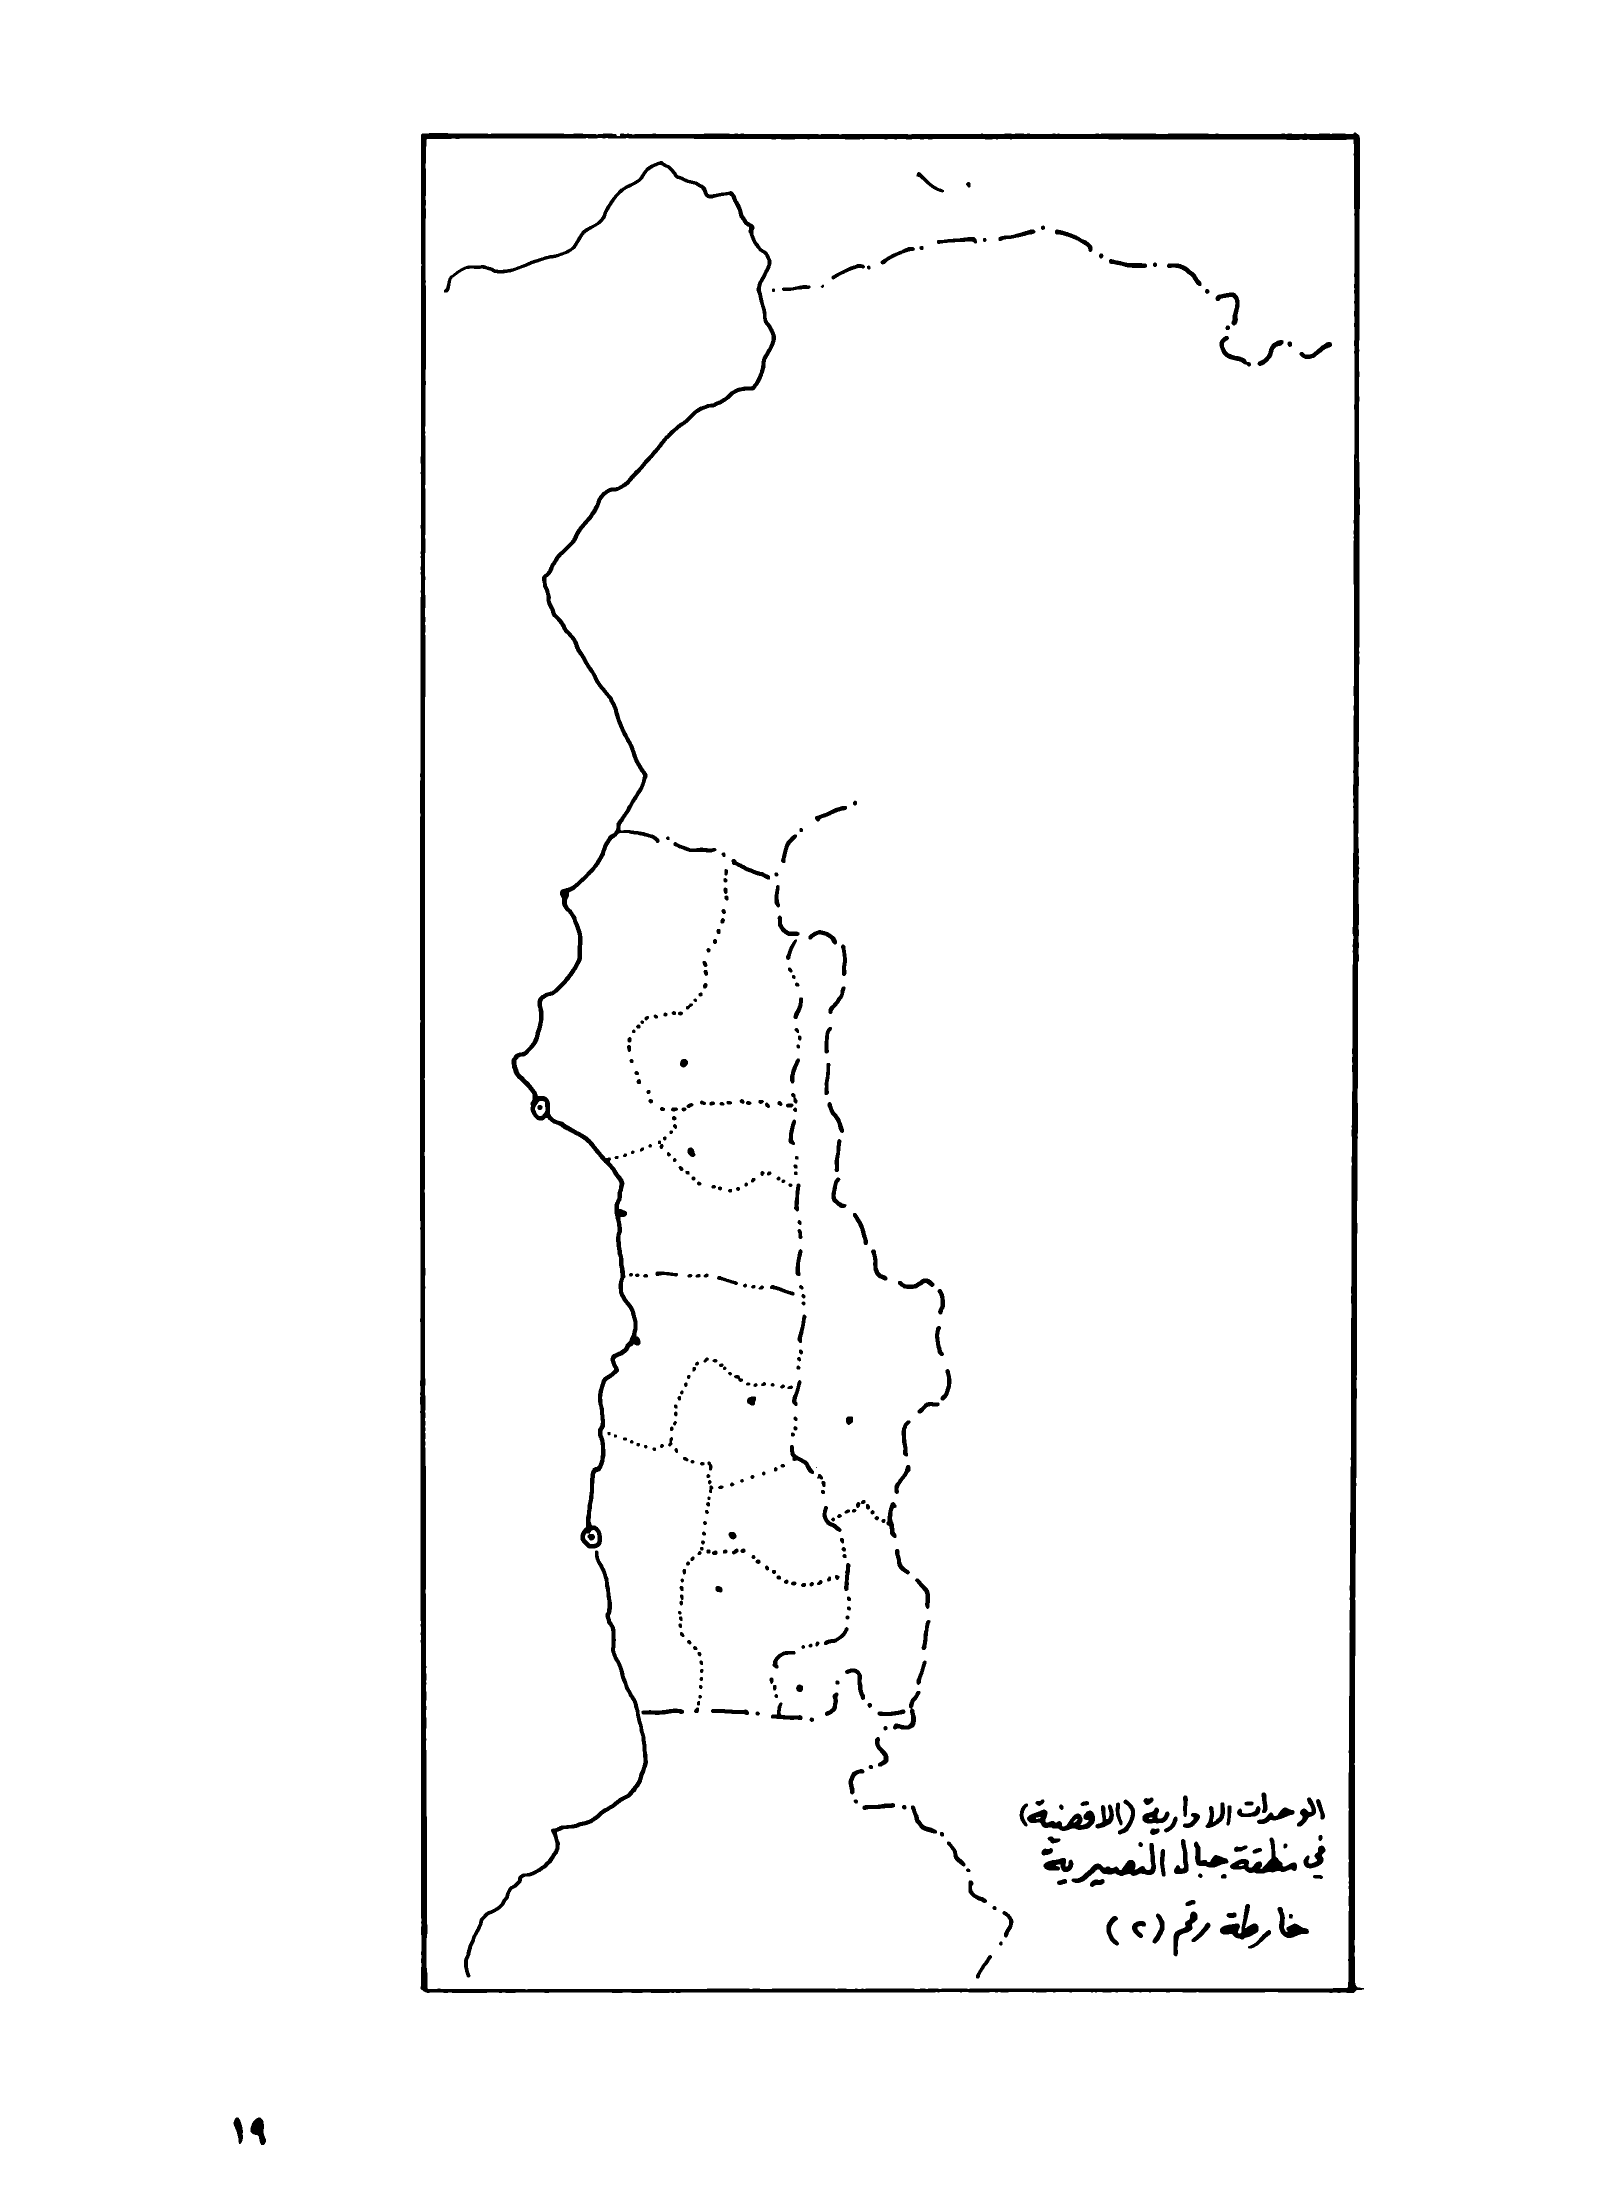 الوحدات الادارية (الاقضية)
في منطقة جبال النصيرية
خارطة رقم (٢)
١٩